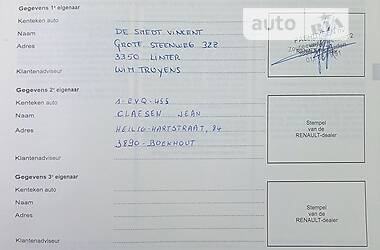 Gegevens 1e eigenaar
Kenteken auto
Naam DE SMEDT VINCENT
Adres GROTE STEENWEG 328
3350 LINTER
Klantenadviseur WIM TRUYENS
auto RIA
Gegevens 2e eigenaar
Kenteken auto 1-EVQ-455
Naam CLAESEN JEAN
Adres HEILIG-HARTSTRAAT, 84
3890-BOEKHOUT
Klantenadviseur
Stempel
van de
RENAULT-dealer
Gegevens 3e eigenaar
Kenteken auto
Naam
Adres
Klantenadviseur
Stempel
van de
RENAULT-dealer